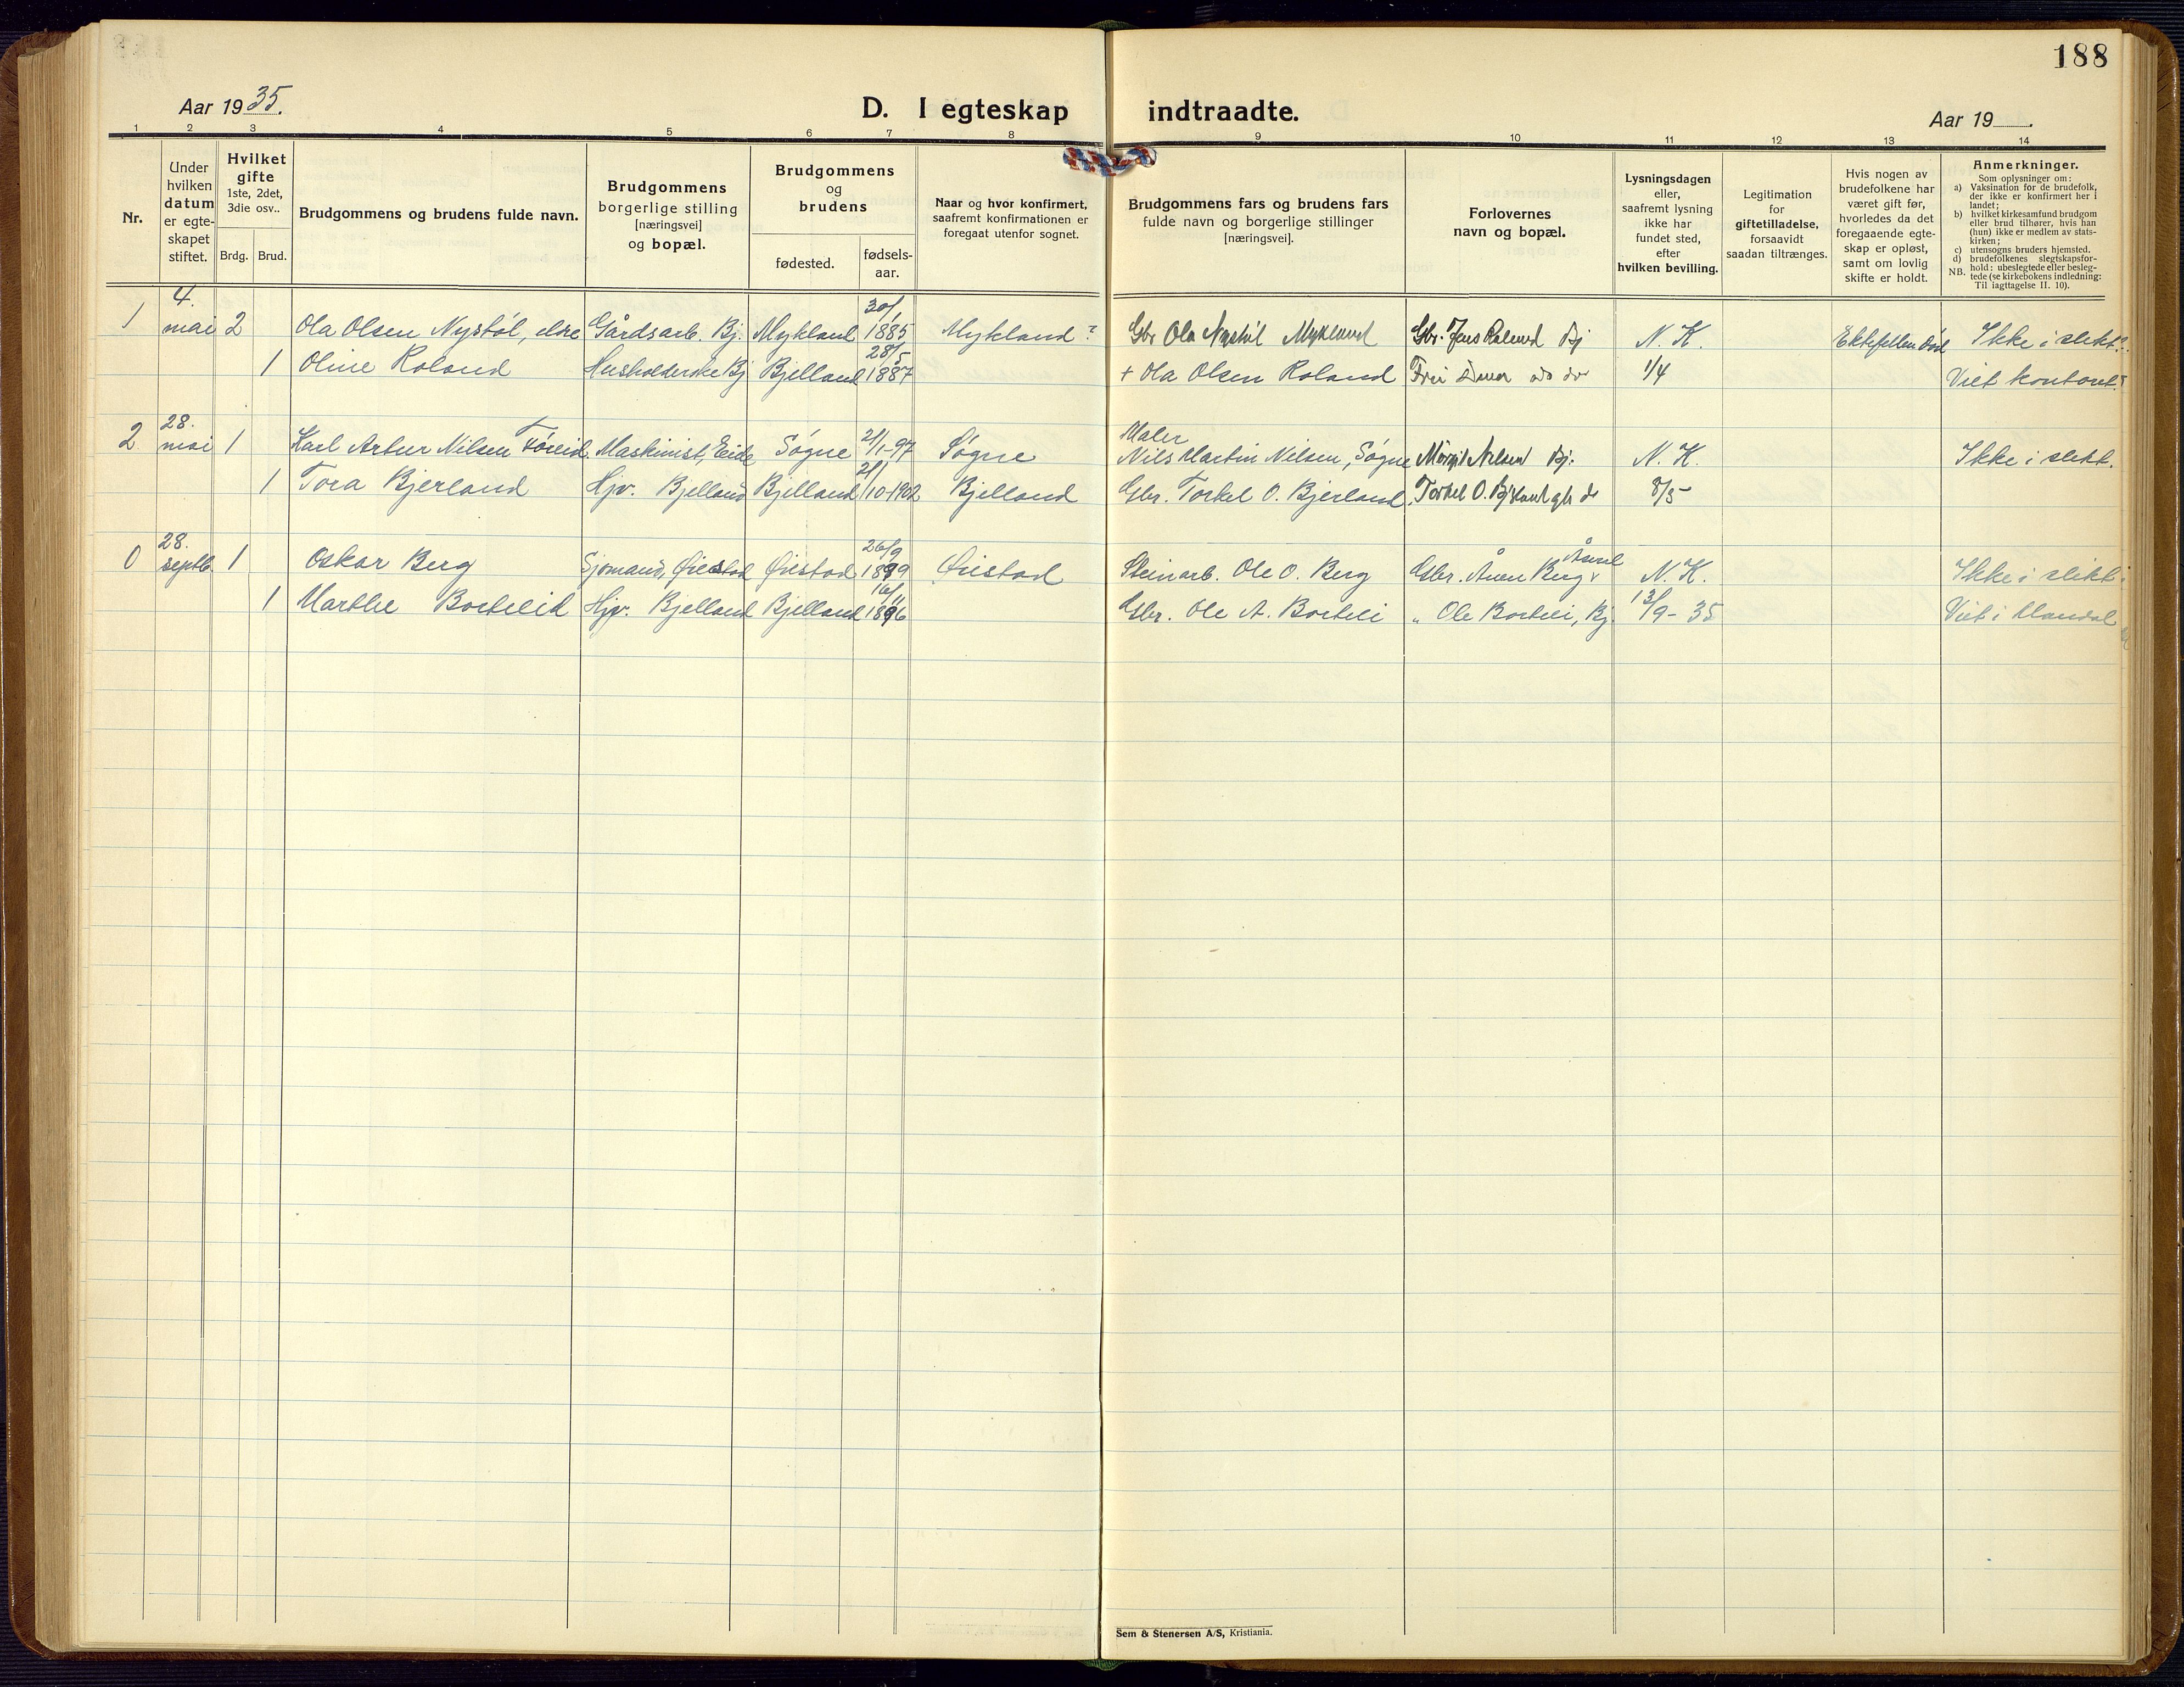 188
Aar 1935.
D. I egteskap indtraadte.
Aar 19
1 2 3 4 5 6 7 8 9 10 11 12 13 14
Nr.
Under hvilken datum er egte-skapet stiftet.
Hvilket gifte 1ste, 2det, 3die osv..
Brdg. Brud.
Brudgommens og brudens fulde navn.
Brudgommens borgerlige stilling [næringsvei] og bopæl.
Brudgommens og brudens
fødested.
fødsels-aar.
Naar og hvor konfirmert, saafremt konfirmationen er foregaat utenfor sognet.
Brudgommens fars og brudens fars fulde navn og borgerlige stillinger [næringsvei].
Forlovernes navn og bopæl.
Lysningsdagen eller, saafremt lysning ikke har fundet sted, efter hvilken bevilling.
Legitimation for giftetilladelse, forsaavidt saadan tiltrænges.
Hvis nogen av brudefolkene har været gift før, hvorledes da det foregaaende egte-skap er opløst, samt om lovlig skifte er holdt.
Anmerkninger.
Som oplysninger om:
a) Vaksination for de brudefolk, der ikke er konfirmert her i landet;
b) hvilket kirkesamfund brudgom eller brud tilhører, hvis han (hun) ikke er medlem av stats-kirken;
c) utensogns bruders hjemsted.
d) brudefolkenes slegtskapsfor-hold: ubeslegtede eller besleg-tede (se kirkebokens indledning: Til iagttagelse II. 10).
NB.
1 4. mai 2 Ola Olsen Nystøl, eldre Gårdsarb. Bj. Mykland 30/1 1885 Mykland? Gbr Ola Nystøl Mykland Gbr. Jens Roland Bj N. K. Ektefellen død Ikke i slekt.
1 Oline Roland Husholderske Bj Bjelland 28/5 1887 + Ola Olsen Roland 1/4 Viet kontoret
2 28. mai 1 Karl Artur Nilsen Maskinist, Eide Søgne 21/1-97 Søgne Maler Nils Martin Nilsen, Søgne Nilsen Bj. N. K. Ikke i slekt.
1 Tora Bjerland Hjv. Bjelland Bjelland 21/10-1902 Bjelland Gbr. Torkel O. Bjerland Torkel O. Bjerland 8/5
0 28. septb. 1 Oskar Berg Sjømand, Øiestad Øiestad 26/9 1899 Øiestad Steinarb. Ole O. Berg Gbr. Berg N. K. Ikke i slekt.
1 Marthe Borteleid Hjv. Bjelland Bjelland 1896 Gbr. Ole A. Borteli " Ole Borteli, Bj. 13/9-35 Viet i Mandal
Sem & Stenersen A/S, Kristiania.